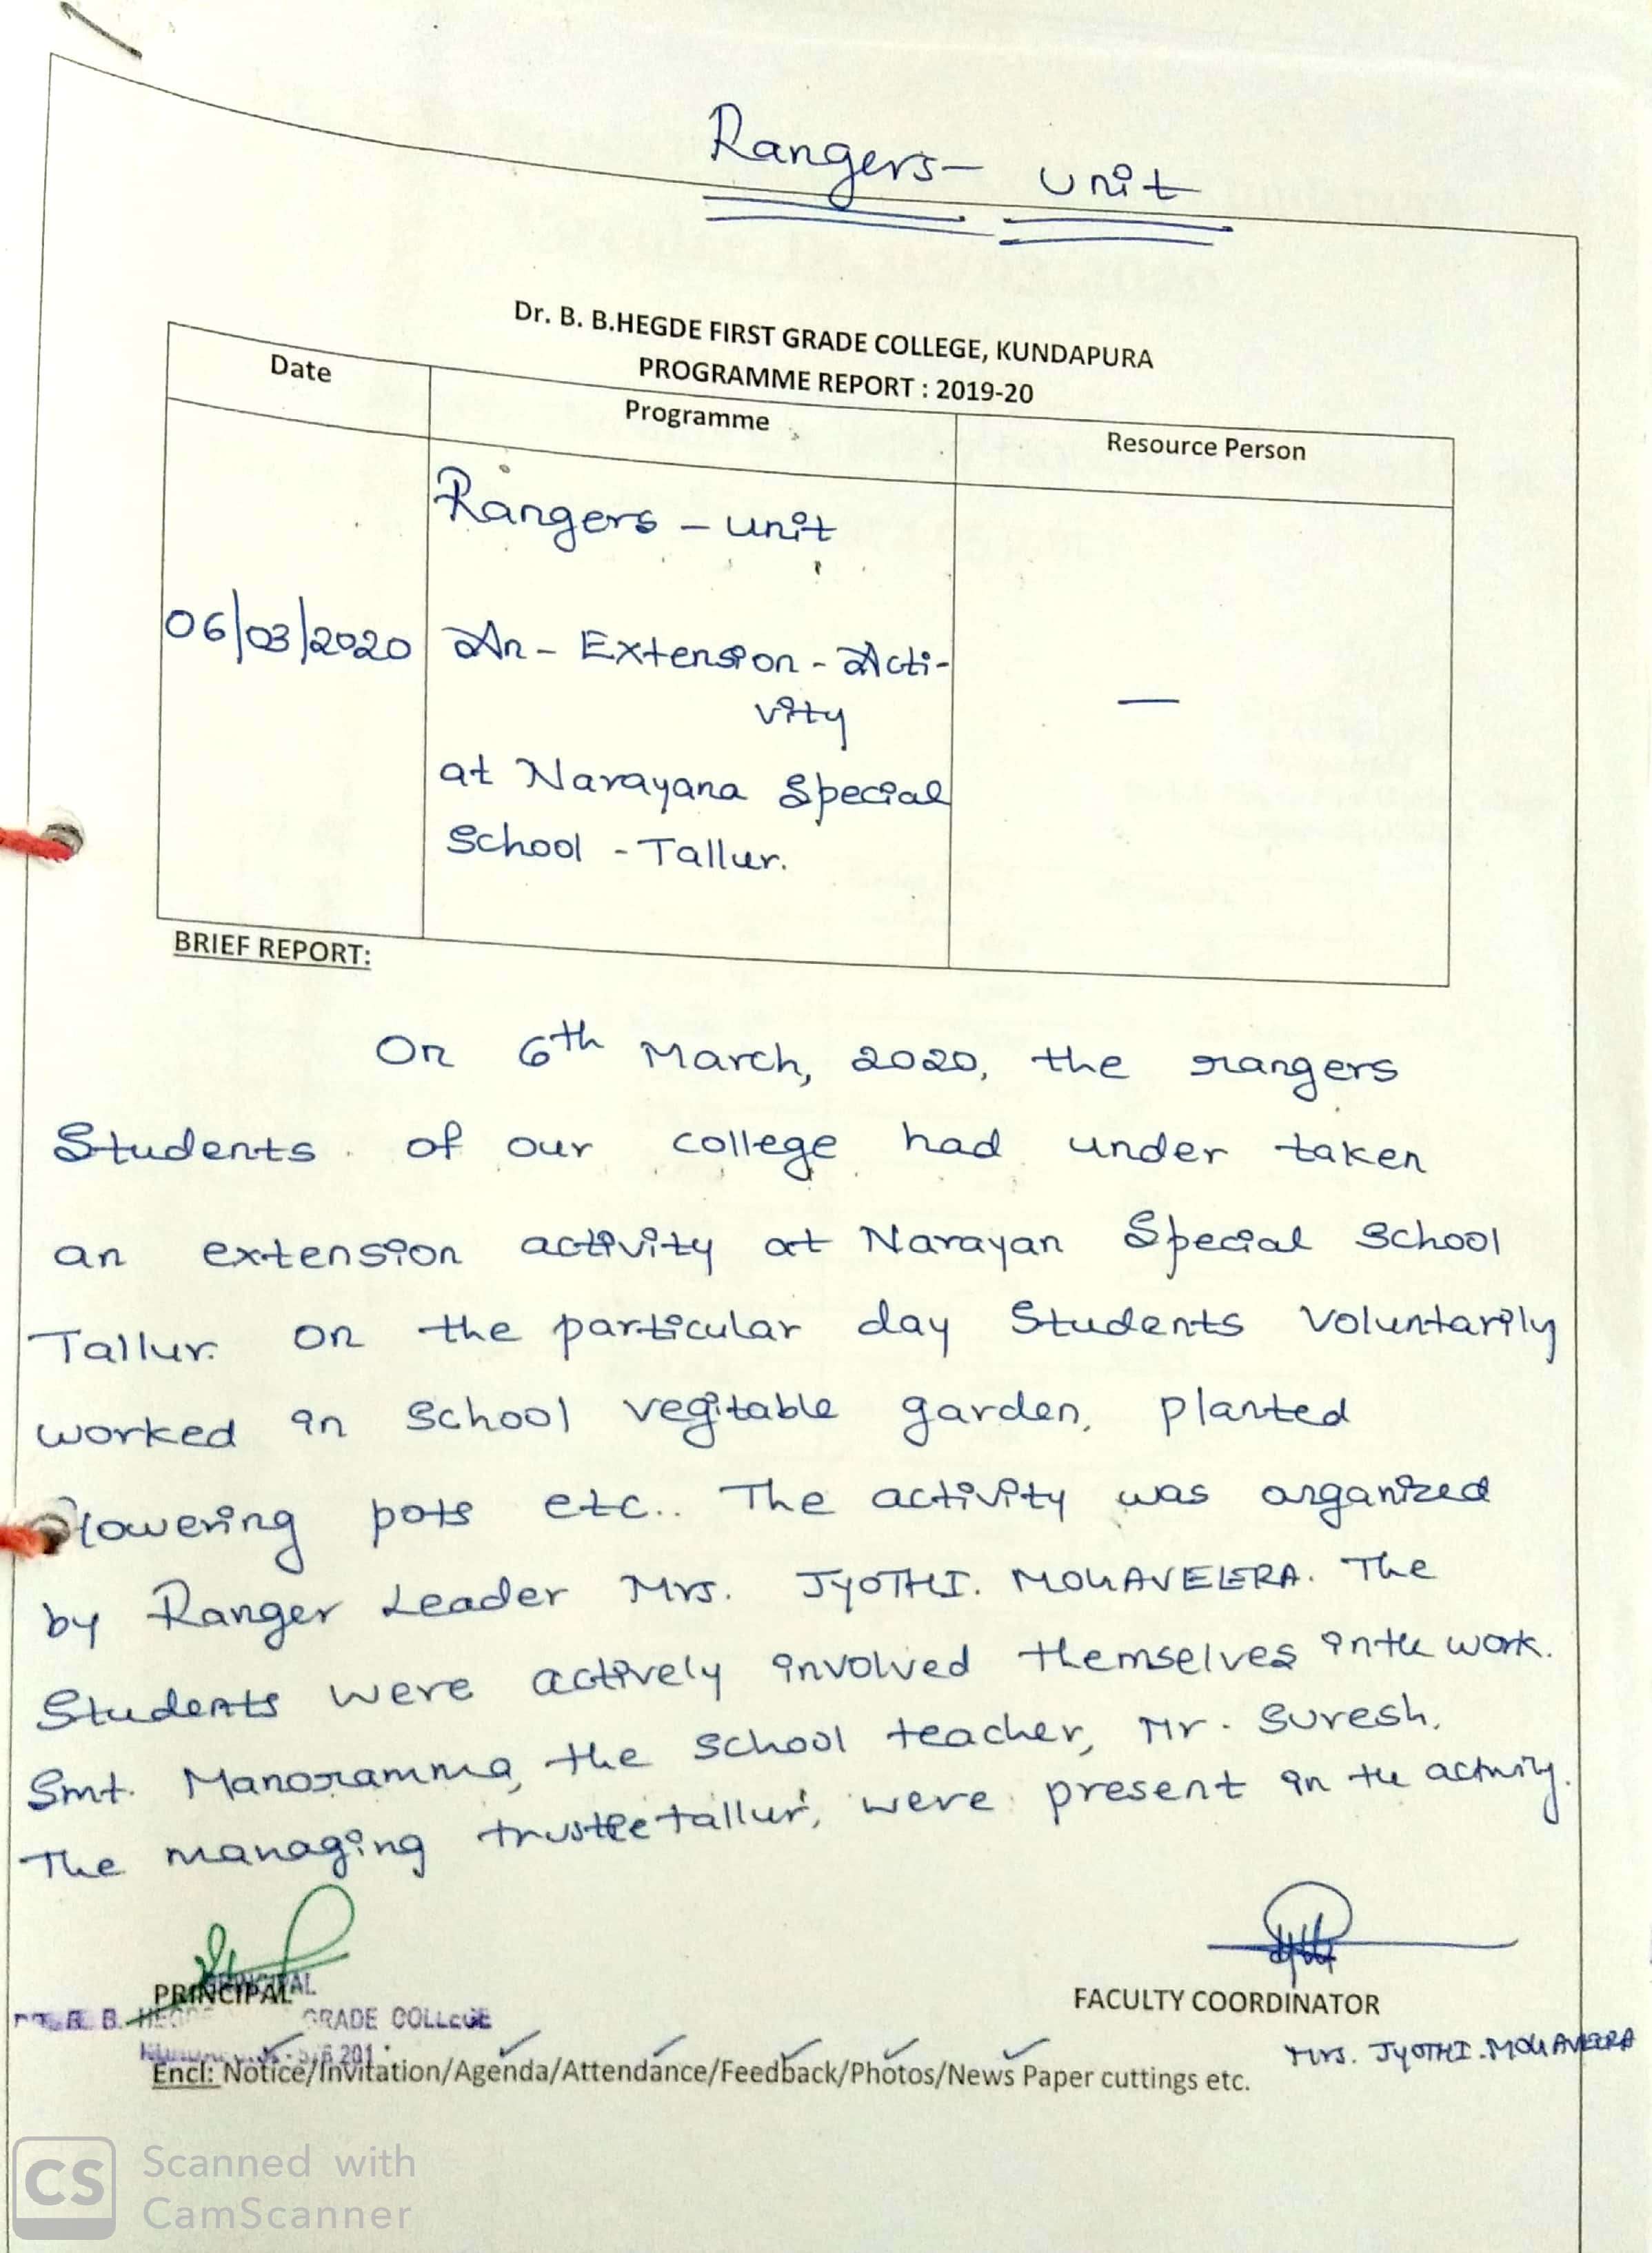 Rangers- unit
Dr. B. B.HEGDE FIRST GRADE COLLEGE, KUNDAPURA
PROGRAMME REPORT : 2019-20
Date
Programme
Resource Person
Rangers - unit
06/03/2020
An - Extension - Acti-
vity
at Narayana Special
School - Tallur.
—
BRIEF REPORT:
On 6th March, 2020, the rangers
Students of our college had under taken
an extension activity at Narayan Special School
Tallur. on the particular day Students Voluntarily
worked in School vegitable garden, planted
flowering pots etc.. The activity was organized
by Ranger Leader Mrs. JYOTHI. The
Students were actively involved themselves in the work.
Smt. Manoramma, the School teacher, Mr. Suresh.
The managing trustee tallur, were present in the activity.
PRINCIPAL
PRINCIPAL
B. HEGDE GRADE COLLEGE
FACULTY COORDINATOR
Mrs. JYOTHI.
Encl: Notice/Invitation/Agenda/Attendance/Feedback/Photos/News Paper cuttings etc.
CS
Scanned with
CamScanner